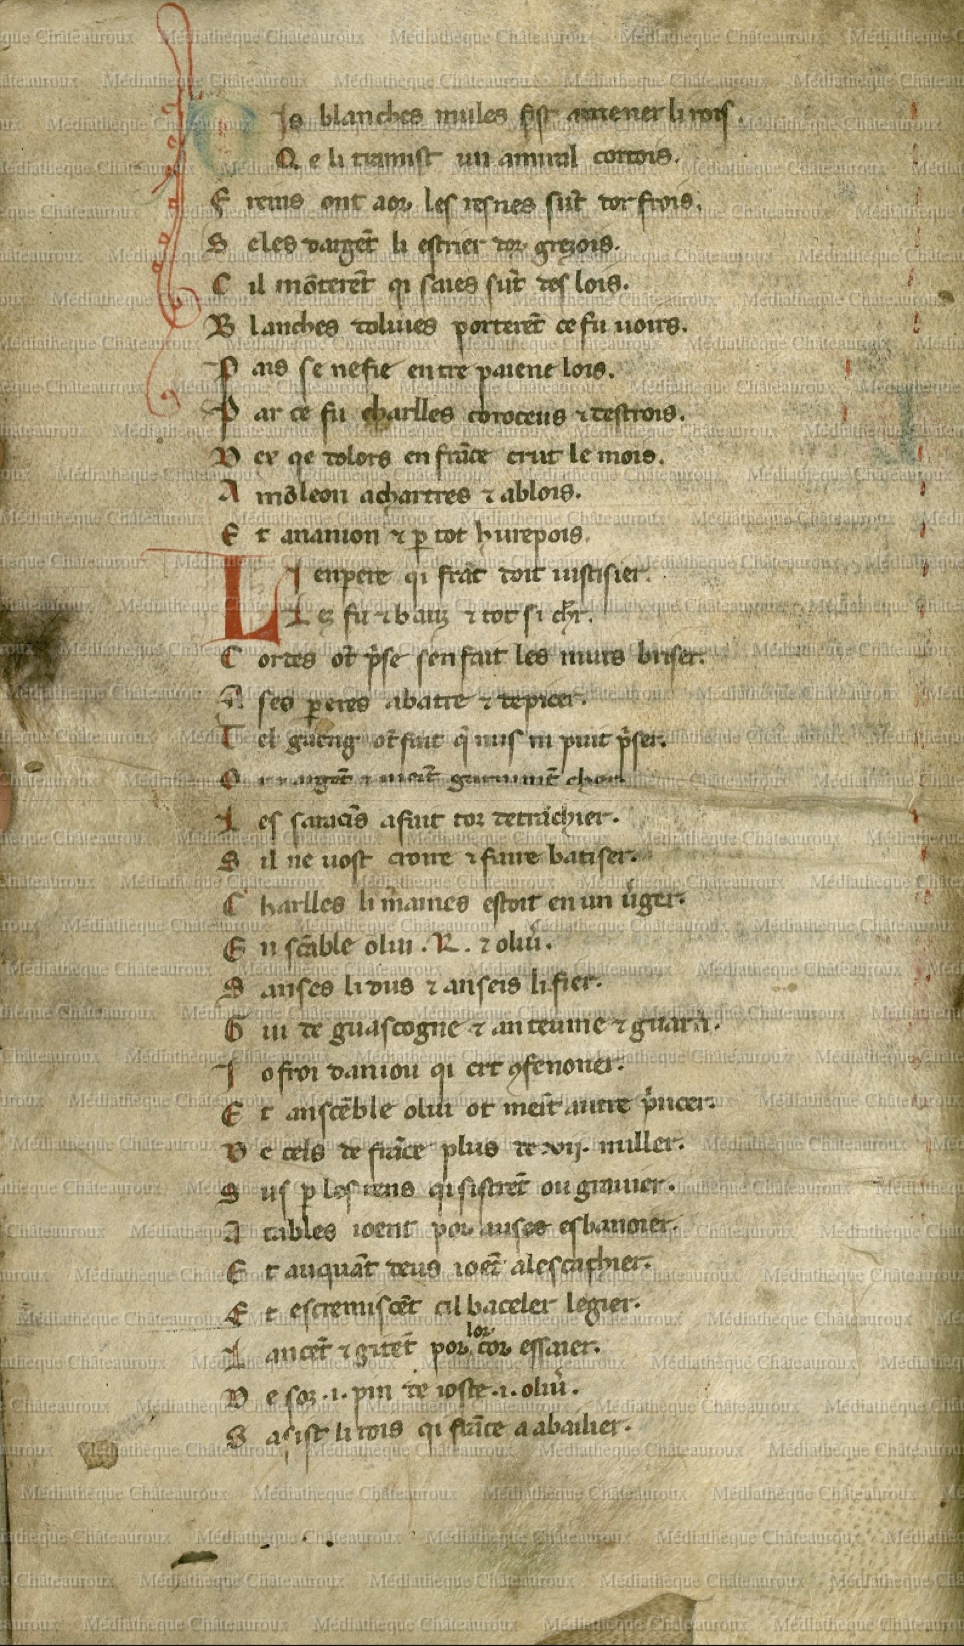 Is blanches mules fist amener li rois.
Q e li tramist un amiral cortois.
F reins ont a or. les resnes sūt dorfrois.
S eles dargēt li estrier dor grezois.
C il mōterēt qi saies sūt des lois.
B lanches dolivies porterēt ce fu voirs.
P ais senefie entre paiene lois.
P ar ce fu charlles coroceus ⁊ destrois.
D ex qe dolors en frāce crut le mois.
A mōleon a chartres ⁊ a blois.
E t a nanion ⁊ p tot hurepois.
LI enpere qi frāc doit iustisier.
L ez fu ⁊ bauz ⁊ tot si chr.
C ordes ot pse sen fait les murs briser.
A ses peres abatre ⁊ depicer.
T el gaeng ot fait q nus ni puit pser.
O r ⁊ argēt ⁊ meīt garnimēt cher.
L es saracīs a fait toz detrāchier.
S il ne vost croire ⁊ faire batiser.
C harlles li maines estoit en un vger.
E n sēble o lui .R. ⁊ oliv.
S anses li dus ⁊ anseis li fier.
G iu de guascogne ⁊ anteume ⁊ guarn.
J ofroi daniou qi ert ꝯfenoner.
E t ansēble o lui ot meīt autre pncer.
D e cels de frāce plus de .vij. miller.
S us p les rens qi sistrēt ou gravier.
A tables ioent por auses esbanoier.
E t auquāt deus ioēt a lescachier.
E t escremiscēt cil baceler legier.
L ancēt ⁊ gitēt por lor cor essaier.
D e soz .i. pin de ioste .i. oliv.
S asist li rois qi frāce a a bailier.
Médiathèque Châteauroux